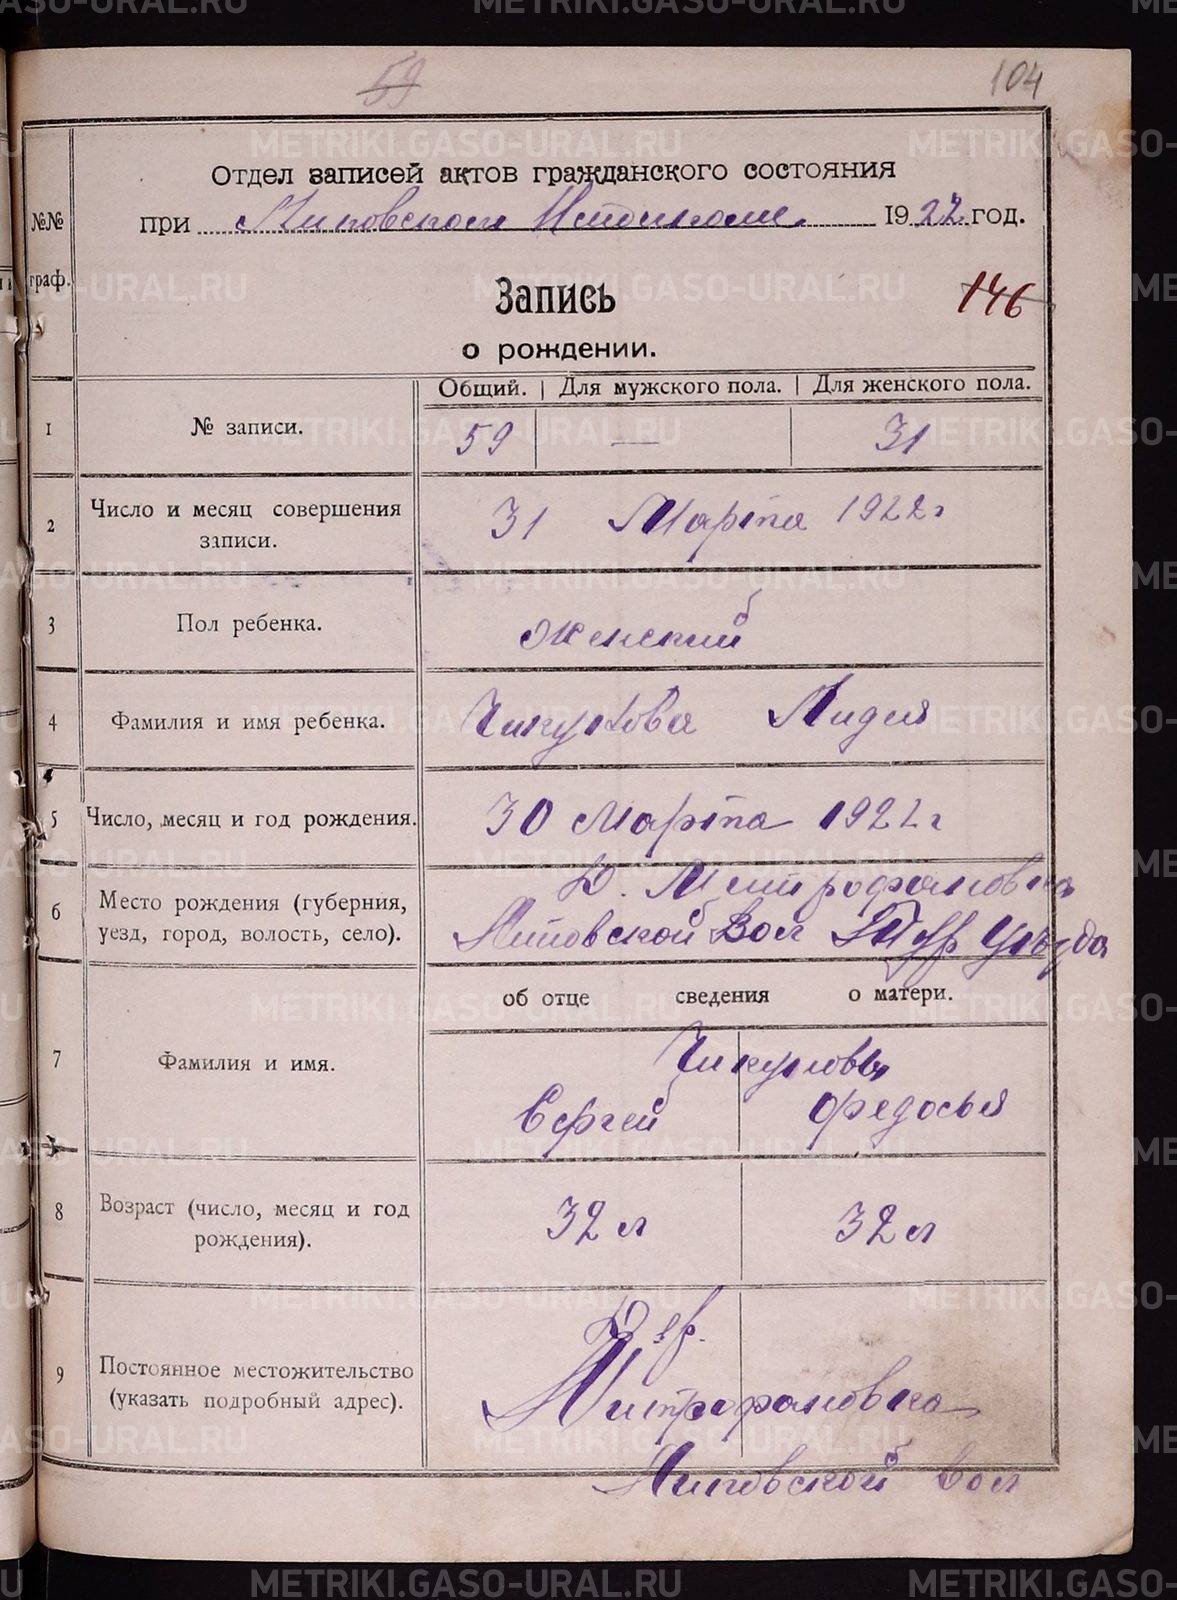 59
104
Отдел записей актов гражданского состояния
при Липовском Исполкоме 1922 год.
№№ граф.
Запись
146
о рождении.
Общий. Для мужского пола. Для женского пола.
1 № записи. 59 — 31
2 Число и месяц совершения записи. 31 Марта 1922 г
3 Пол ребенка. Женский
4 Фамилия и имя ребенка. Чикунова Лидия
5 Число, месяц и год рождения. 30 Марта 1922 г
6 Место рождения (губерния, уезд, город, волость, село). Д. Митрофановка
Липовской Вол уезда
об отце сведения о матери.
7 Фамилия и имя. Чикуновы
Сергей Федосья
8 Возраст (число, месяц и год рождения). 32 л 32 л
9 Постоянное местожительство (указать подробный адрес). Дер.
Митрофановка
Липовской вол
METRIKI.GASO-URAL.RU